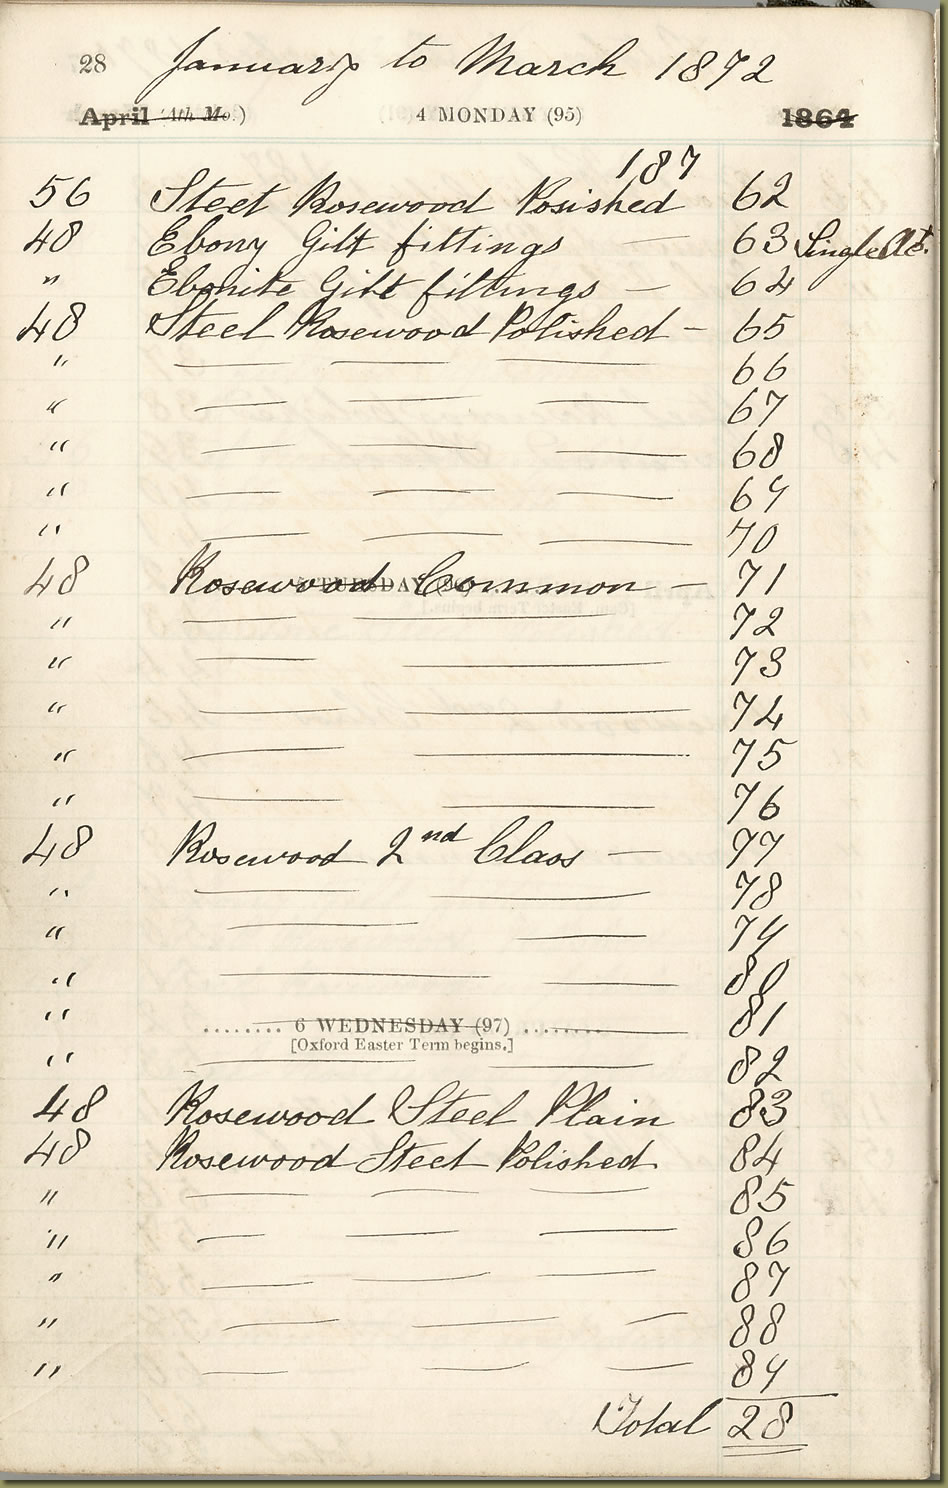 28 January to March 1872
April (4th Mo.) 4 MONDAY (95) 1864
187
56 Steel Rosewood Posished 62
48 Ebony Gilt fittings — 63 Single Act.
" Ebonite Gilt fittings — 64
48 Steel Rosewood Polished — 65
" — — — 66
" — — — 67
" — — — 68
" — — — 69
" — — — 70
48 Rosewood Common — 71
" — — 72
" — — 73
" — — 74
" — — 75
" — — 76
48 Rosewood 2nd Class — 77
" — — 78
" — — 79
" — — 80
" — — 81
........ 6 WEDNESDAY (97) ........
[Oxford Easter Term begins.]
" — — 82
48 Rosewood Steel Plain 83
48 Rosewood Steel Polished 84
" — — — 85
" — — — 86
" — — — 87
" — — — 88
" — — — 89
Total 28